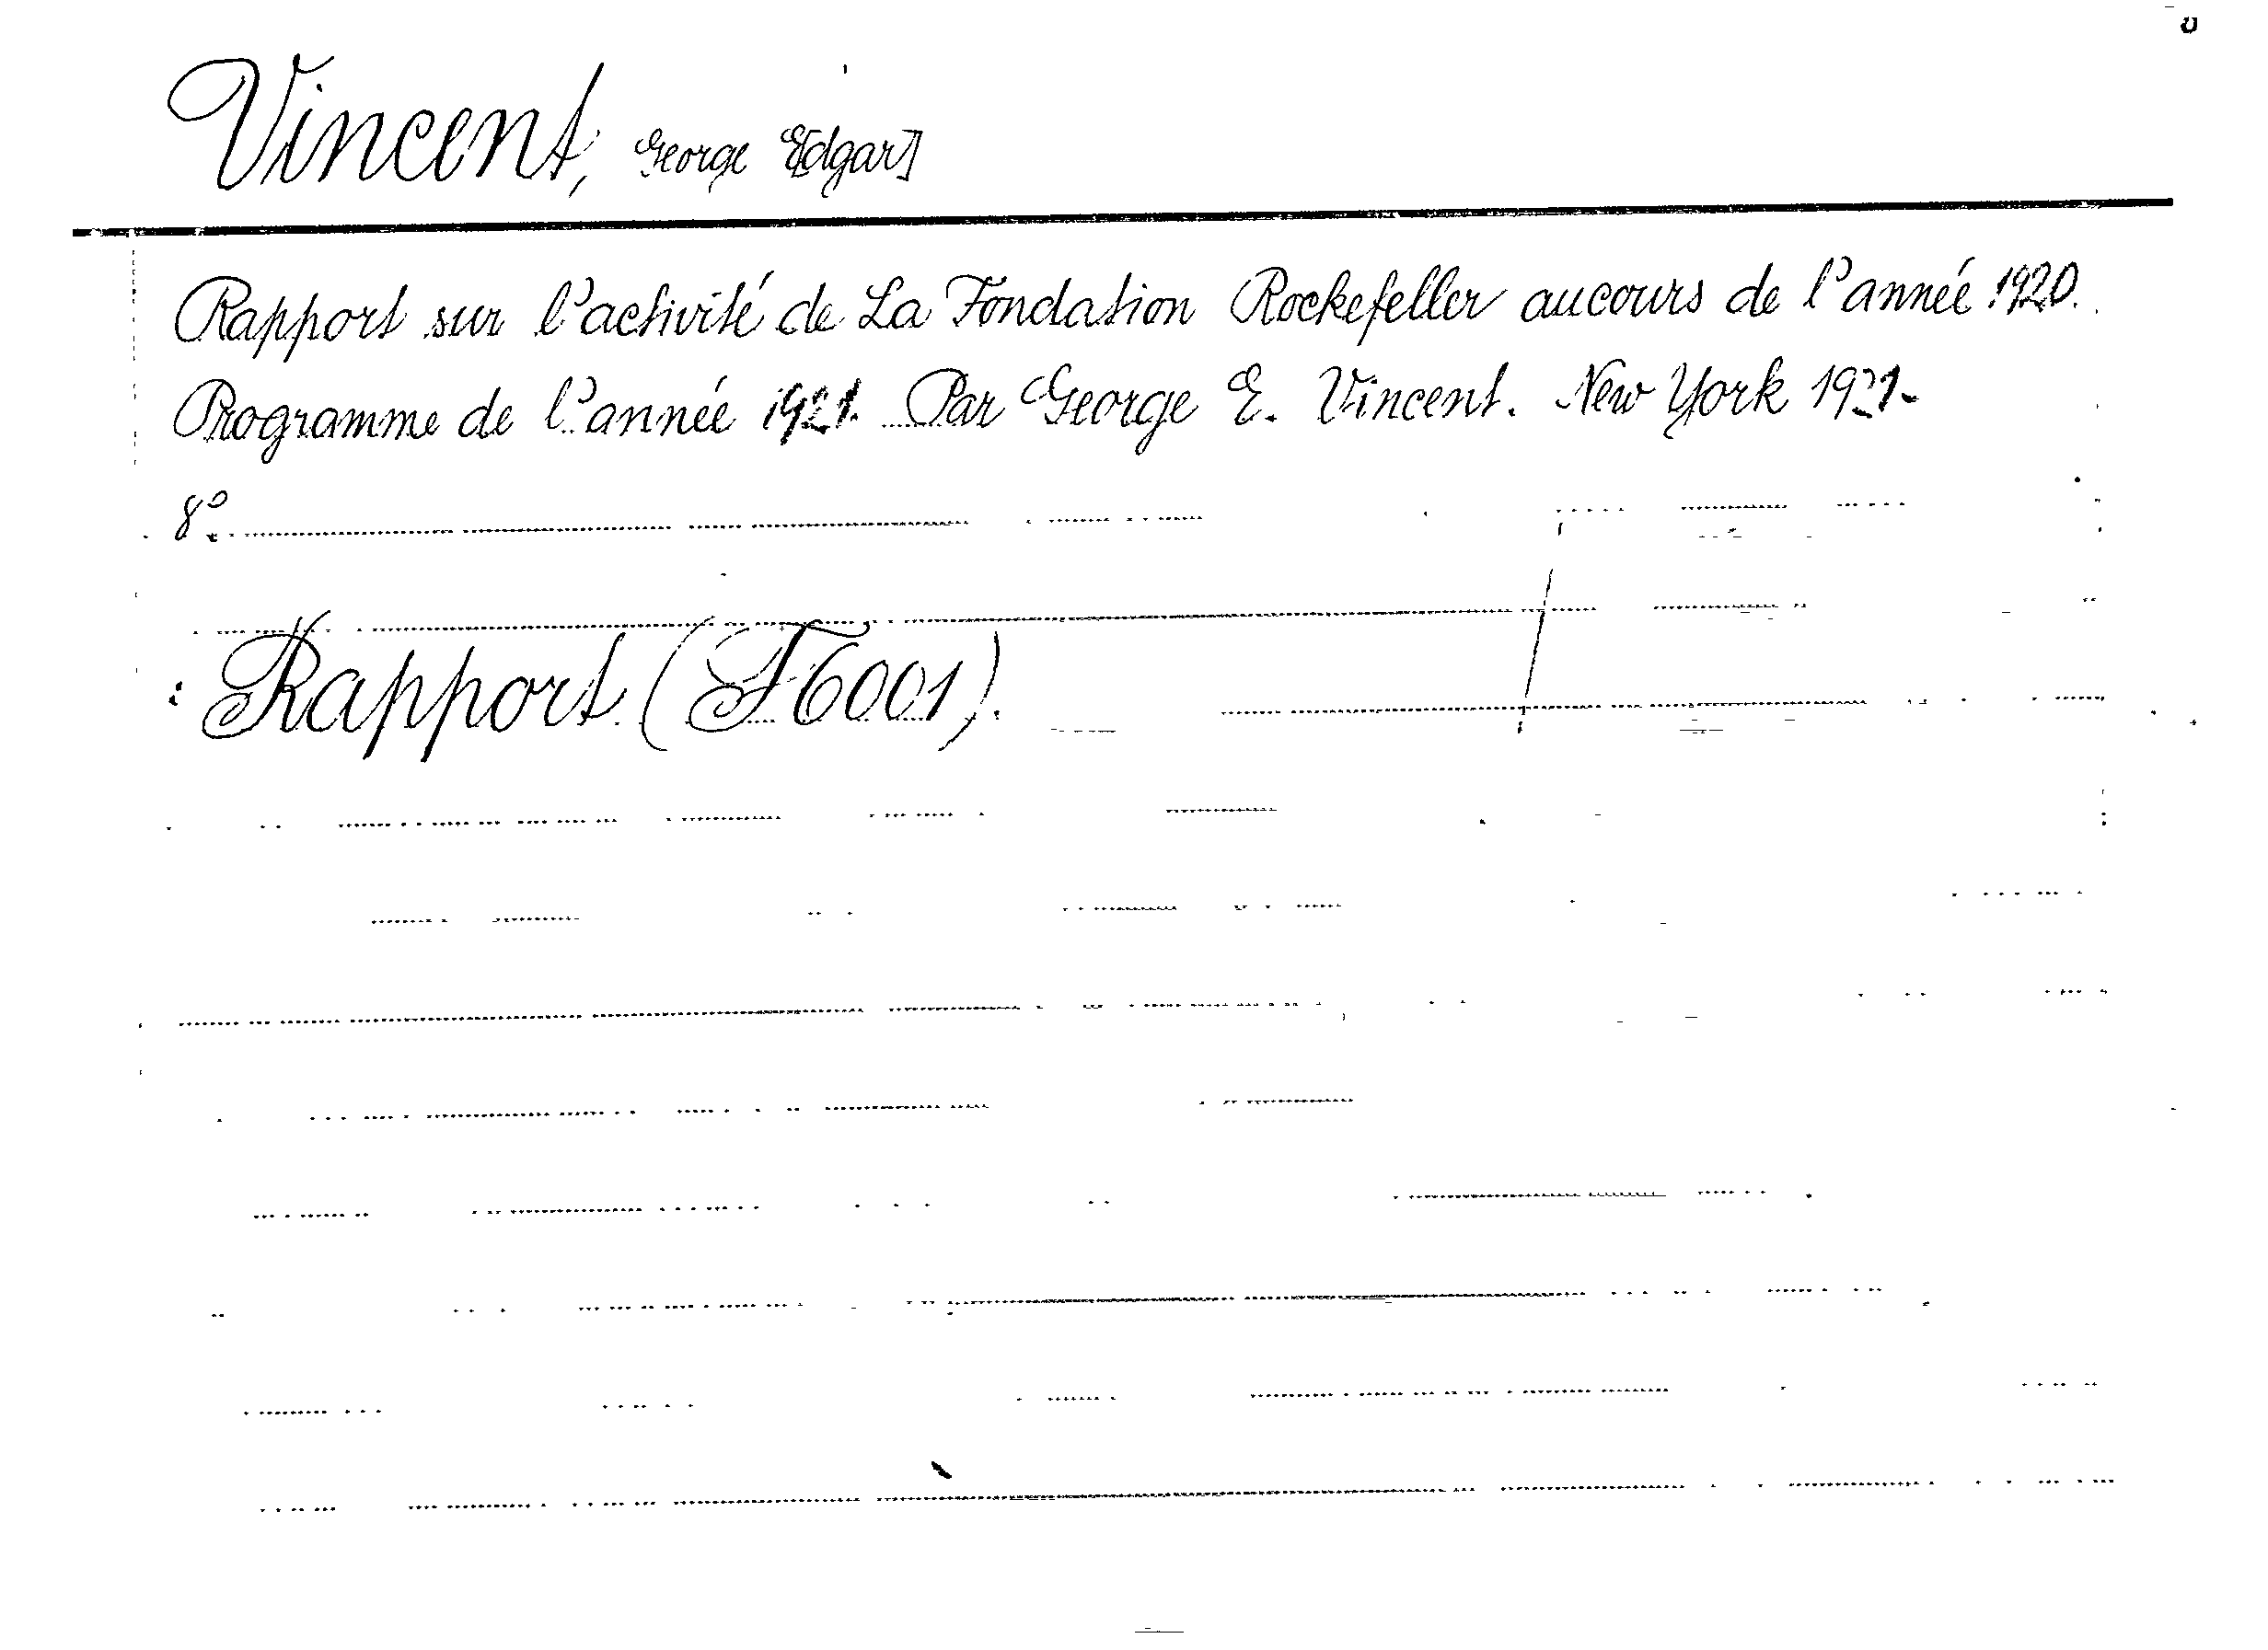 Vincent, George E[dgar]
Rapport sur l'activité de La Fondation Rockefeller au cours de l'année 1920.
Programme de l'année 1921. Par George E. Vincent. New York 1921.
8°.
Rapport (F6001).